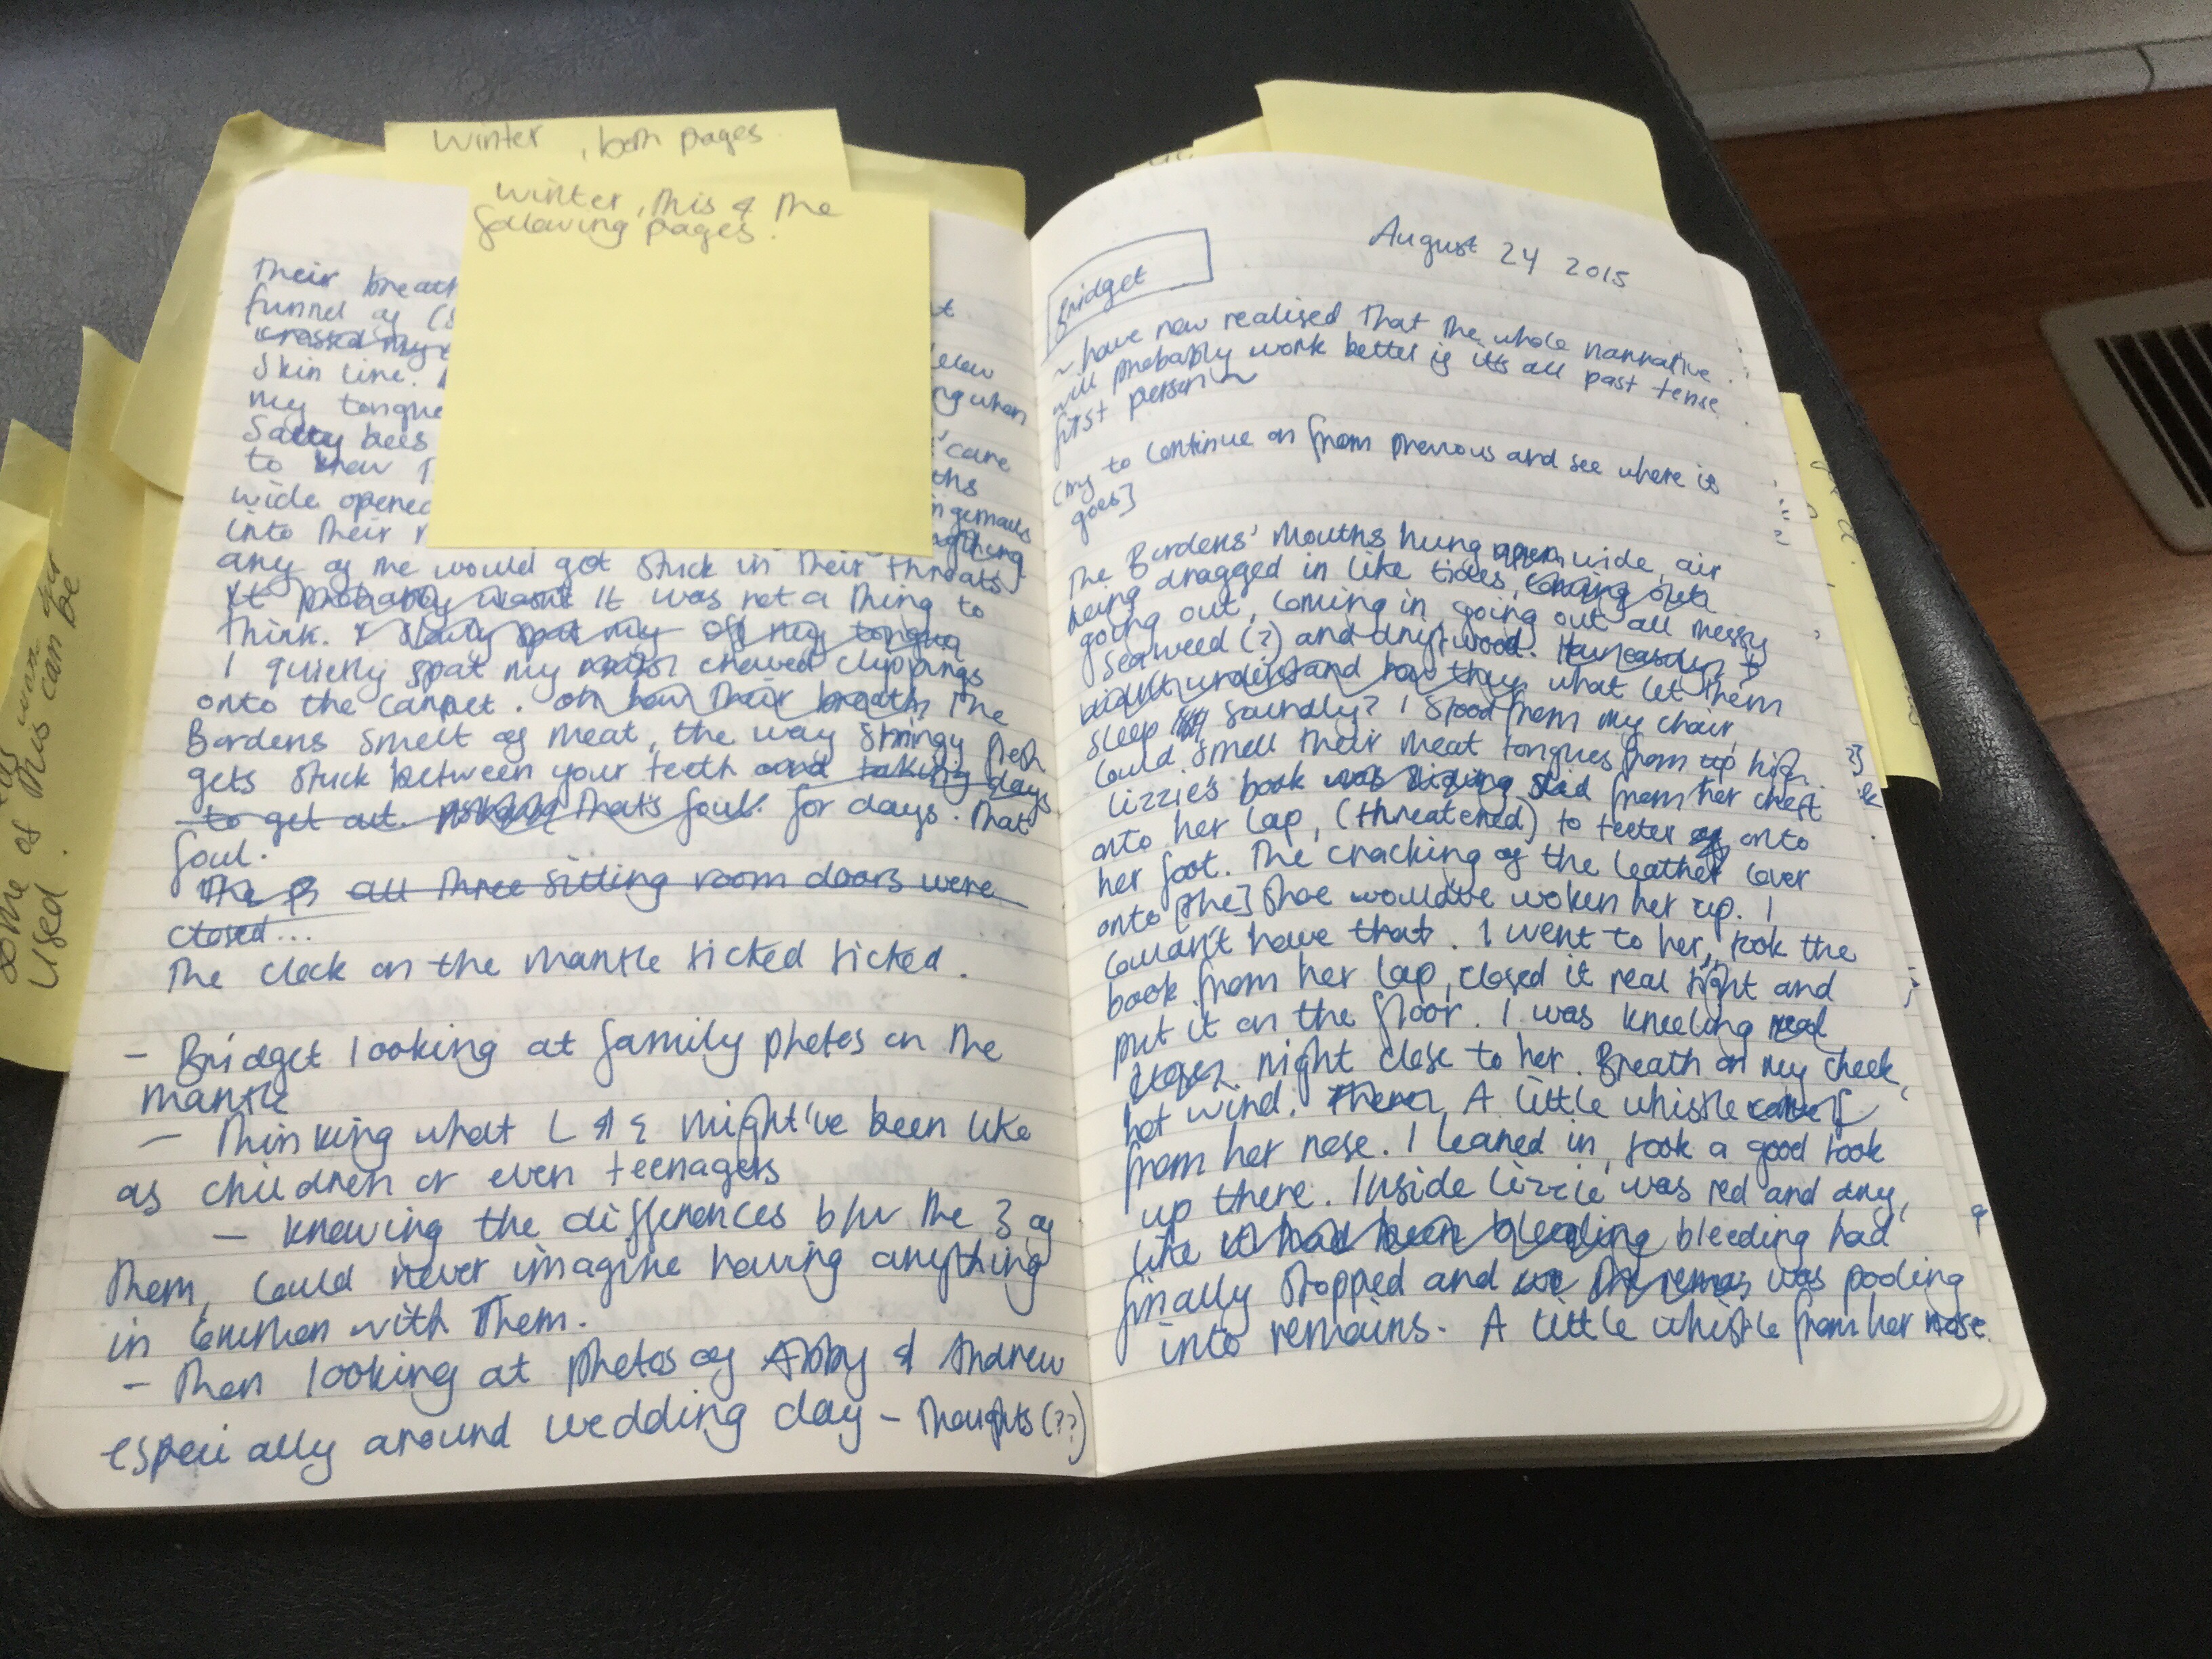 Winter, both pages.
Winter, this & the
following pages.
Some of this can be
used.
Their breath
funnel of (s
crossed my
skin line.
my tongue
Salty bees
to know
wide opened
into their
any of me would got stuck in their throats
It probably wasn't It was not a thing to
think. I slowly spat my off my tongue
I quietly spat my chewed clippings
onto the carpet. oh how their breath The
Bordens smelt of meat, the way stringy flesh
gets stuck between your teeth and taking days
to get out. that's foul. for days. That
foul.
The all three sitting room doors were
closed...
The clock on the mantle ticked ticked.
- Bridget looking at family photos on the
mantle
- Thinking what L & E might've been like
as children or even teenagers
- knowing the differences b/w the 3 of
them, could never imagine having anything
in common with them.
- Then looking at photos of Abby & Andrew
especially around wedding day - thoughts (??)
August 24 2015
Bridget
~ have now realised that the whole narrative
will probably work better if it's all past tense
first person ~
[try to continue on from previous and see where it
goes]
The Bordens' mouths hung open wide, air
being dragged in like tides, coming out
going out, coming in, going out all messy
seaweed (?) and driftwood.
understand how they what let them
sleep soundly? I stood from my chair,
could smell their meat tongues from up high.
Lizzie's book was sliding slid from her chest
onto her lap, (threatened) to teeter off onto
her foot. The cracking of the leather cover
onto [the] shoe would've woken her up. I
couldn't have that. I went to her, took the
book from her lap, closed it real tight and
put it on the floor. I was kneeling real
closer right close to her. Breath on my cheek,
hot wind. There A little whistle came
from her nose. I leaned in, took a good look
up there. Inside Lizzie was red and dry,
like it had been bleeding bleeding had
finally stopped and the remains was pooling
into remains. A little whistle from her nose.